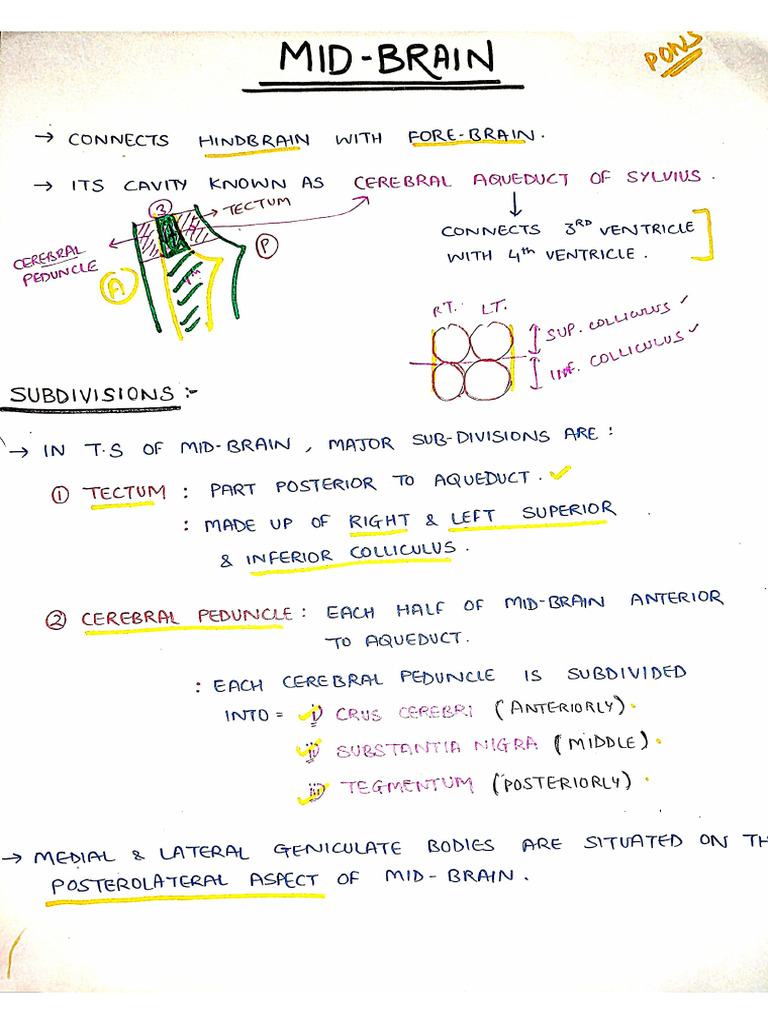 MID-BRAIN
PONS
→ CONNECTS HINDBRAIN WITH FORE-BRAIN.
→ ITS CAVITY KNOWN AS CEREBRAL AQUEDUCT OF SYLVIUS.
↓
CONNECTS 3RD VENTRICLE
WITH 4th VENTRICLE.
3
→ TECTUM
CEREBRAL
PEDUNCLE
P
A
4th
RT. LT.
SUP. COLLICULUS ✓
INF. COLLICULUS ✓
SUBDIVISIONS :-
→ IN T.S OF MID-BRAIN, MAJOR SUB-DIVISIONS ARE :
① TECTUM : PART POSTERIOR TO AQUEDUCT. ✓
: MADE UP OF RIGHT & LEFT SUPERIOR
& INFERIOR COLLICULUS.
② CEREBRAL PEDUNCLE : EACH HALF OF MID-BRAIN ANTERIOR
TO AQUEDUCT.
: EACH CEREBRAL PEDUNCLE IS SUBDIVIDED
INTO = i) CRUS CEREBRI (ANTERIORLY).
ii) SUBSTANTIA NIGRA (MIDDLE).
iii) TEGMENTUM (POSTERIORLY).
→ MEDIAL & LATERAL GENICULATE BODIES ARE SITUATED ON TH
POSTEROLATERAL ASPECT OF MID-BRAIN.